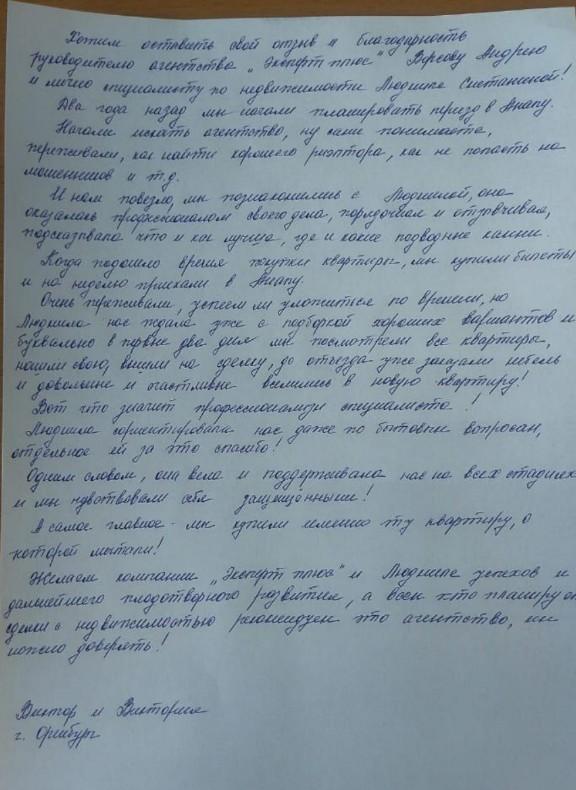 Хотим оставить свой отзыв и благодарность
руководителю агентства „Эксперт плюс" Андрею
и лично специалисту по недвижимости Людмиле Сметаниной!
Два года назад мы начали планировать переезд в Анапу.
Начали искать агентство, ну сами понимаете,
переживали, как найти хорошего риэлтора, как не попасть на
мошенников и т.д.
И нам повезло, мы познакомились с Людмилой, она
оказалась профессионалом своего дела, порядочная и отзывчивая,
подсказывала что и как лучше, где и какие подводные камни.
Когда подошло время покупки квартиры, мы купили билеты
и на неделю приехали в Анапу.
Очень переживали, успеем ли уложиться по времени, но
Людмила нас ждала уже с подборкой хороших вариантов и
буквально в первые два дня мы посмотрели все квартиры,
нашли свою, вышли на сделку, до отъезда уже заказали мебель
и довольные и счастливые вселились в новую квартиру!
Вот что значит профессионализм специалиста!
Людмила сориентировала нас даже по бытовым вопросам,
отдельное ей за это спасибо!
Одним словом, она вела и поддерживала нас на всех стадиях
и мы чувствовали себя защищёнными!
А самое главное - мы купили именно ту квартиру, о
которой мечтали!
Желаем компании „Эксперт плюс" и Людмиле успехов и
дальнейшего плодотворного развития, а всем кто планирует
сделки с недвижимостью рекомендуем это агентство, им
можно доверять!
Виктор и Виктория
г. Оренбург